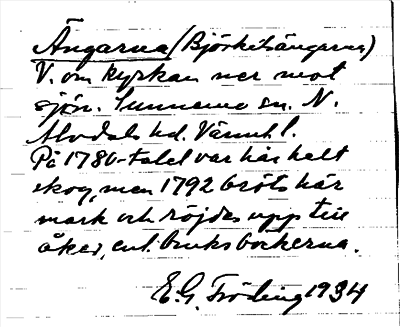 Ängarna (Björkitsängerna)
V. om kyrkan ner mot
sjön. Sunnemo sn. N.
Älvdals hd. Värml.
På 1780-talet var här helt
skog, men 1792 bröts här
mark och röjdes upp till
åker, enl. bruksböckerna.
E.G. Fröding 1934